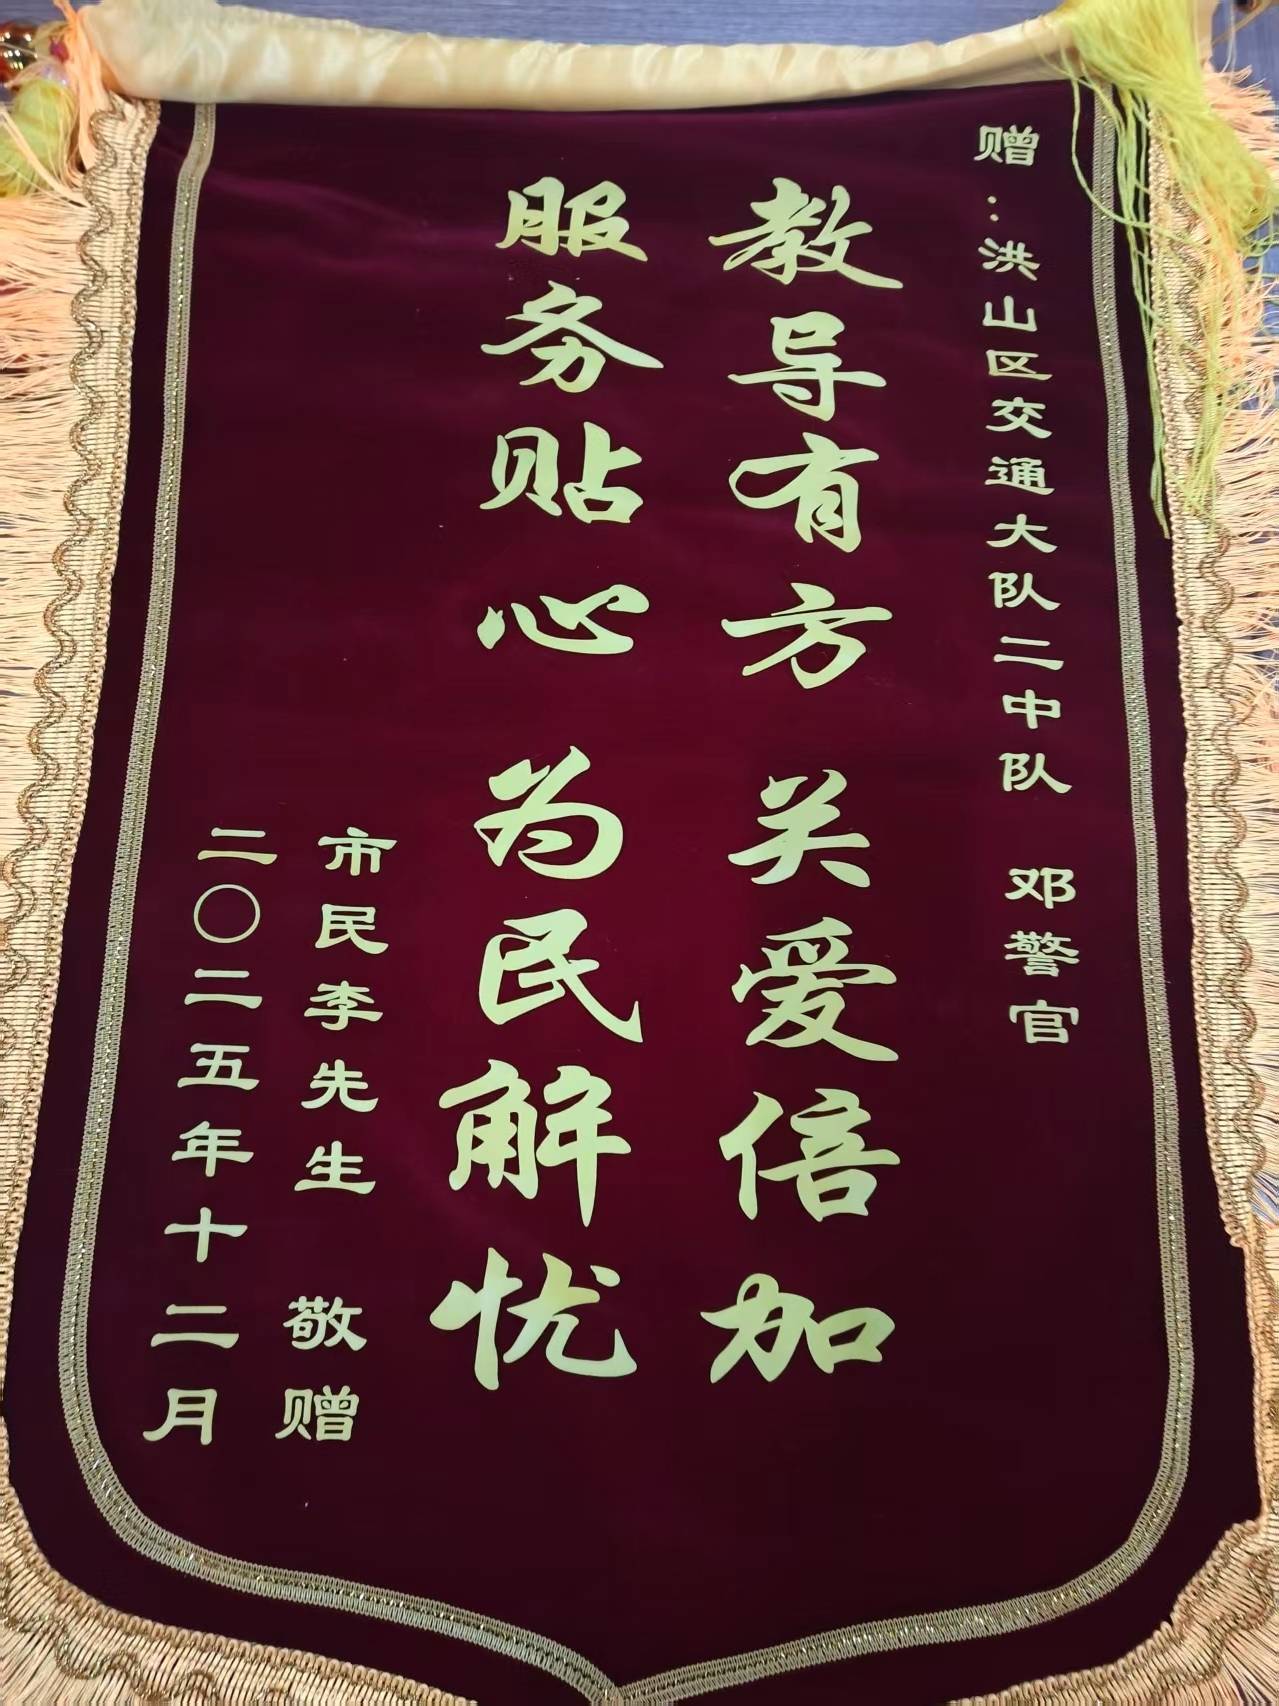 赠：洪山区交通大队二中队 邓警官
教导有方 关爱倍加
服务贴心 为民解忧
市民李先生 敬赠
二〇二五年十二月